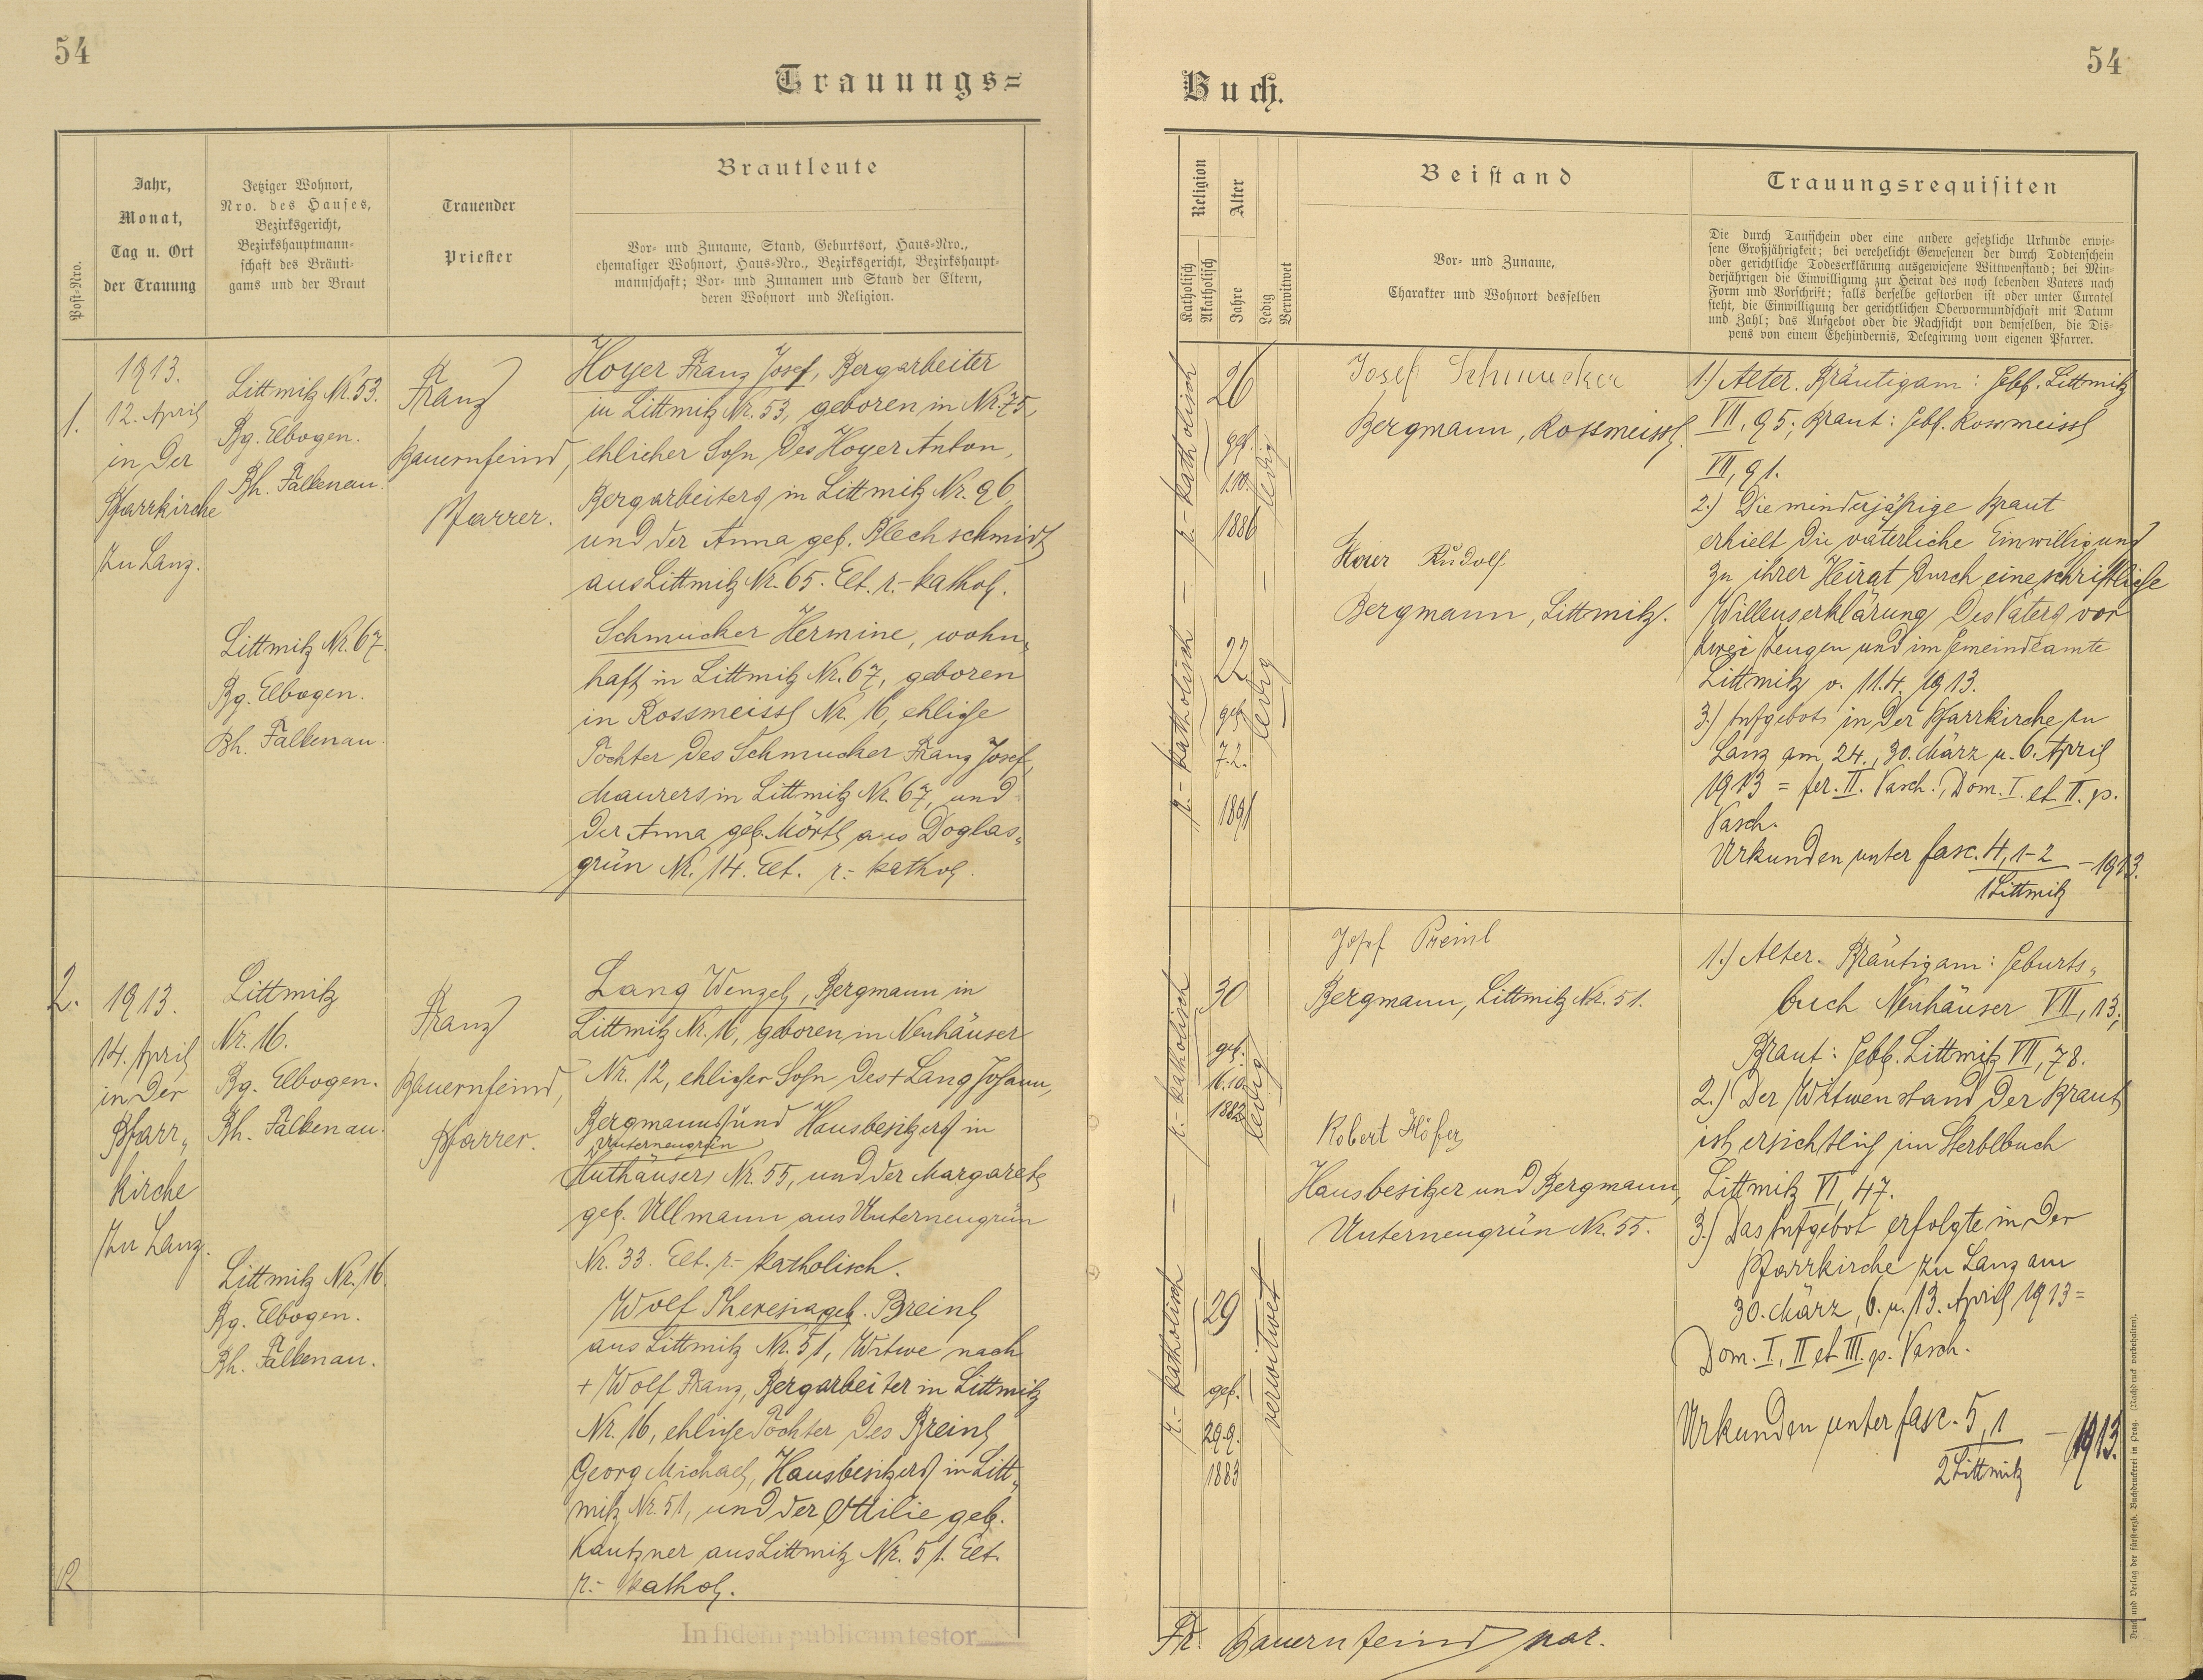 54
Trauungs=
Post-Nro.
Jahr,
Monat,
Tag u. Ort
der Trauung
Jetziger Wohnort,
Nro. des Hauses,
Bezirksgericht,
Bezirkshauptmann-
schaft des Bräuti-
gams und der Braut
Trauender
Priester
Brautleute
Vor- und Zuname, Stand, Geburtsort, Haus-Nro.,
ehemaliger Wohnort, Haus-Nro., Bezirksgericht, Bezirkshaupt-
mannschaft; Vor- und Zunamen und Stand der Eltern,
deren Wohnort und Religion.
1.
1913.
12. April
in der
Pfarrkirche
zu Lanz.
Littmitz Nr. 53.
Bg. Elbogen.
Bh. Falkenau.
Littmitz Nr. 67.
Bg. Elbogen.
Bh. Falkenau.
Franz
Bauernfeind,
Pfarrer.
Hoyer Franz Josef, Bergarbeiter
in Littmitz Nr. 53, geboren in Nr. 75,
ehlicher Sohn des Hoyer Anton,
Bergarbeiters in Littmitz Nr. 96,
und der Anna geb. Blechschmidt
aus Littmitz Nr. 65. Elt. r.-kathol.
Schmucker Hermine, wohn-
haft in Littmitz Nr. 67, geboren
in Rossmeissl Nr. 16, ehliche
Tochter des Schmucker Franz Josef,
Maurers in Littmitz Nr. 67, und
der Anna geb. Mörtl aus Doglas-
grün Nr. 14. Elt. r.- kathol.
2.
1913.
14. April
in der
Pfarr-
kirche
zu Lanz.
Littmitz
Nr. 16.
Bg. Elbogen.
Bh. Falkenau.
Littmitz Nr. 16.
Bg. Elbogen.
Bh. Falkenau.
Franz
Bauernfeind,
Pfarrer.
Lang Wenzel, Bergmann in
Littmitz Nr. 16, geboren in Neuhäuser
Nr. 12, ehlicher Sohn des + Lang Johann,
Bergmanns und Hausbesitzers in
Unterneugrün
(Huthäuser) Nr. 55, und der Margarete
geb. Ullmann aus Unterneugrün
Nr. 33. Elt. r.- katholisch.
Wolf Theresia geb. Breinl
aus Littmitz Nr. 51, Witwe nach
+ Wolf Franz, Bergarbeiter in Littmitz
Nr. 16, ehliche Tochter des Breinl
Georg Michael, Hausbesitzers in Litt-
mitz Nr. 51, und der Ottilie geb.
Kautzner aus Littmitz Nr. 51. Elt.
r.- kathol.
In fidem publicam testor
54
Buch.
Religion
Katholisch
Akatholisch
Alter
Jahre
Ledig
Verwitwet
Beistand
Vor- und Zuname,
Charakter und Wohnort desselben
Trauungsrequisiten
Die durch Taufschein oder eine andere gesetzliche Urkunde erwie-
sene Großjährigkeit; bei verehelicht Gewesenen der durch Todtenschein
oder gerichtliche Todeserklärung ausgewiesene Wittwenstand; bei Min-
derjährigen die Einwilligung zur Heirat des noch lebenden Vaters nach
Form und Vorschrift; falls derselbe gestorben ist oder unter Curatel
steht, die Einwilligung der gerichtlichen Obervormundschaft mit Datum
und Zahl; das Aufgebot oder die Nachsicht von demselben, die Dis-
pens von einem Ehehindernis, Delegirung vom eigenen Pfarrer.
r.- katholisch
26
geb.
1.10.
1886
ledig
r.- katholisch
22
geb.
7.2.
1891
ledig
Josef Schmucker
Bergmann, Rossmeissl.
Hoier Rudolf
Bergmann, Littmitz.
1.) Alter. Bräutigam: Gebb. Littmitz
VII, 95; Braut: Gebb. Rossmeissl
VII, 91.
2.) Die minderjährige Braut
erhielt die väterliche Einwilligung
zu ihrer Heirat durch eine schriftliche
Willenserklärung des Vaters vor
zwei Zeugen und im Gemeindeamte
Littmitz v. 11.4. 1913.
3.) Aufgebot in der Pfarrkirche zu
Lanz am 24., 30. März u. 6. April
1913 = fer. II. Pasch., Dom. I. et II. p.
Pasch.
Urkunden unter fasc. 4, 1-2 - 1913.
1 Littmitz
r.- katholisch
30
geb.
16.10.
1882
ledig
r.- katholisch
29
geb.
29.9.
1883
verwitwet
Josef Preinl
Bergmann, Littmitz Nr. 51.
Robert Höfer,
Hausbesitzer und Bergmann,
Unterneugrün Nr. 55.
1.) Alter. Bräutigam: Geburts-
buch Neuhäuser VII, 13;
Braut: Gebb. Littmitz VII, 78.
2.) Der Witwenstand der Braut
ist ersichtlich im Sterbbuch
Littmitz VI, 47.
3.) Das Aufgebot erfolgte in der
Pfarrkirche zu Lanz am
30. März, 6. u. 13. April 1913 =
Dom. I, II et III. p. Pasch.
Urkunden unter fasc. 5, 1 - 1913.
2 Littmitz
Fr. Bauernfeind par.
Druck und Verlag der fürst-erzb. Buchdruckerei in Prag. (Nachdruck vorbehalten).